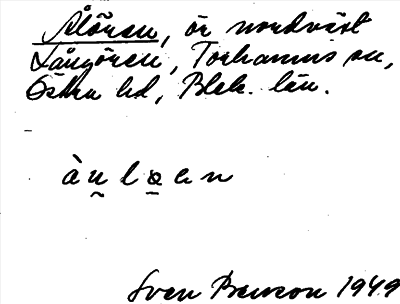 Ålören, ör nordväst
Långören, Torhamns sn,
Östra hd, Blek. län.
Sven Benson 1949